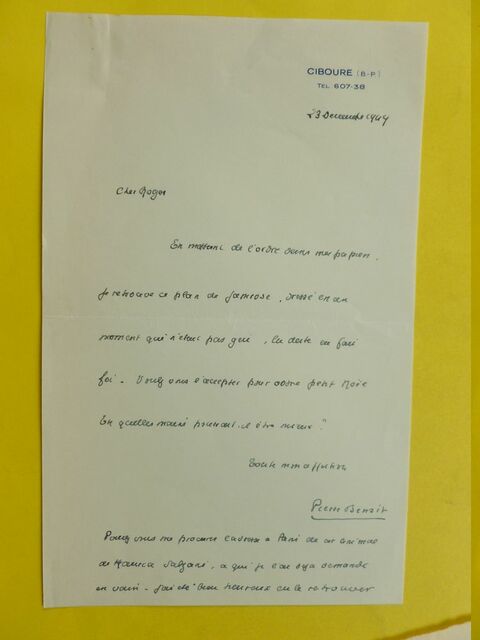 CIBOURE (B.-P.)
TEL. 607-38
23 Decembre 1947
Cher Roger
En mettant de l'ordre dans mes papiers,
je retrouve ce plan de , dressé en un
moment qui n'était pas gai, la date en fait
foi. Voulez vous l'accepter pour votre petit Noël
En quelles mains pourrait-il être mieux?
Toute mon affection
Pierre Benoit
Pouvez vous me procurer l'adresse à Paris de cet animal
de , à qui je l'ai déjà demandé
en vain. J'ai été bien heureux de le retrouver